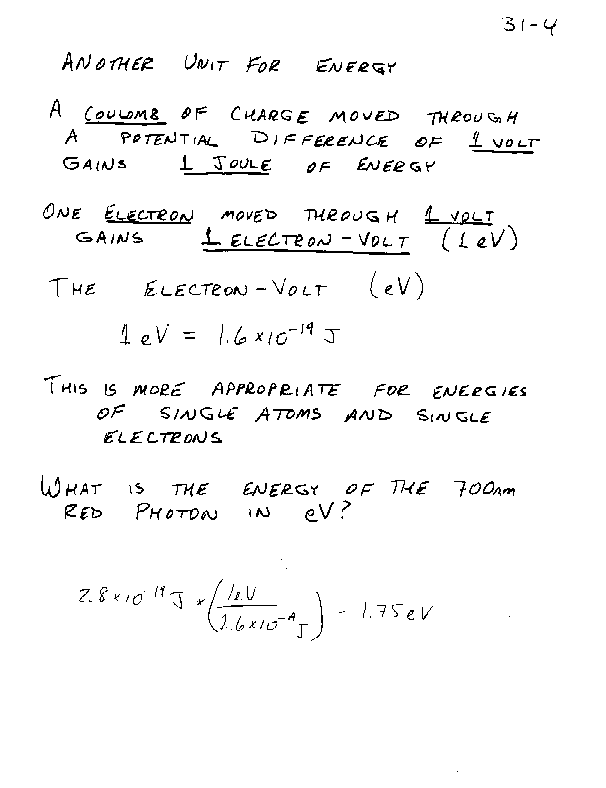 31-4
ANOTHER UNIT FOR ENERGY
A COULOMB OF CHARGE MOVED THROUGH
A POTENTIAL DIFFERENCE OF 1 VOLT
GAINS 1 JOULE OF ENERGY
ONE ELECTRON MOVED THROUGH 1 VOLT
GAINS 1 ELECTRON-VOLT (1 eV)
THE ELECTRON-VOLT (eV)
1 eV = 1.6 × 10⁻¹⁹ J
THIS IS MORE APPROPRIATE FOR ENERGIES
OF SINGLE ATOMS AND SINGLE
ELECTRONS
WHAT IS THE ENERGY OF THE 700nm
RED PHOTON IN eV?
2.8 × 10⁻¹⁹ J × (1eV / 1.6 × 10⁻¹⁹ J) = 1.75 eV